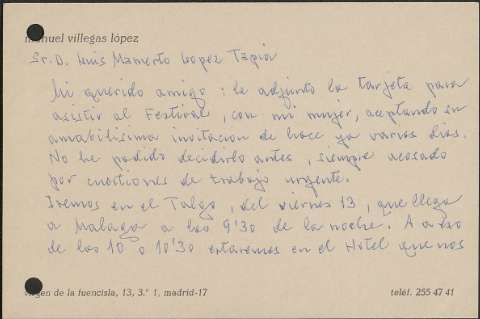 manuel villegas lópez
Sr. D. Luis Mamerto Lopez Tapia
Mi querido amigo: le adjunto la tarjeta para
asistir al Festival, con mi mujer, aceptando su
amabilisima invitacion de hace ya varios dias.
No he podido decidirlo antes, siempre acosado
por cuestiones de trabajo urgente.
Iremos en el Talgo, del viernes 13, que llega
a Malaga a las 9'30 de la noche. A eso
de las 10 o 10'30 estaremos en el Hotel que nos
virgen de la fuencisla, 13, 3.º 1, madrid-17
teléf. 255 47 41